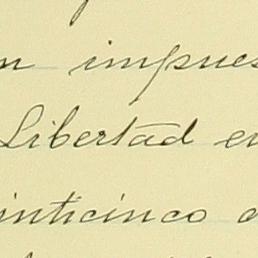 n impues
Libertad en
inticinco a